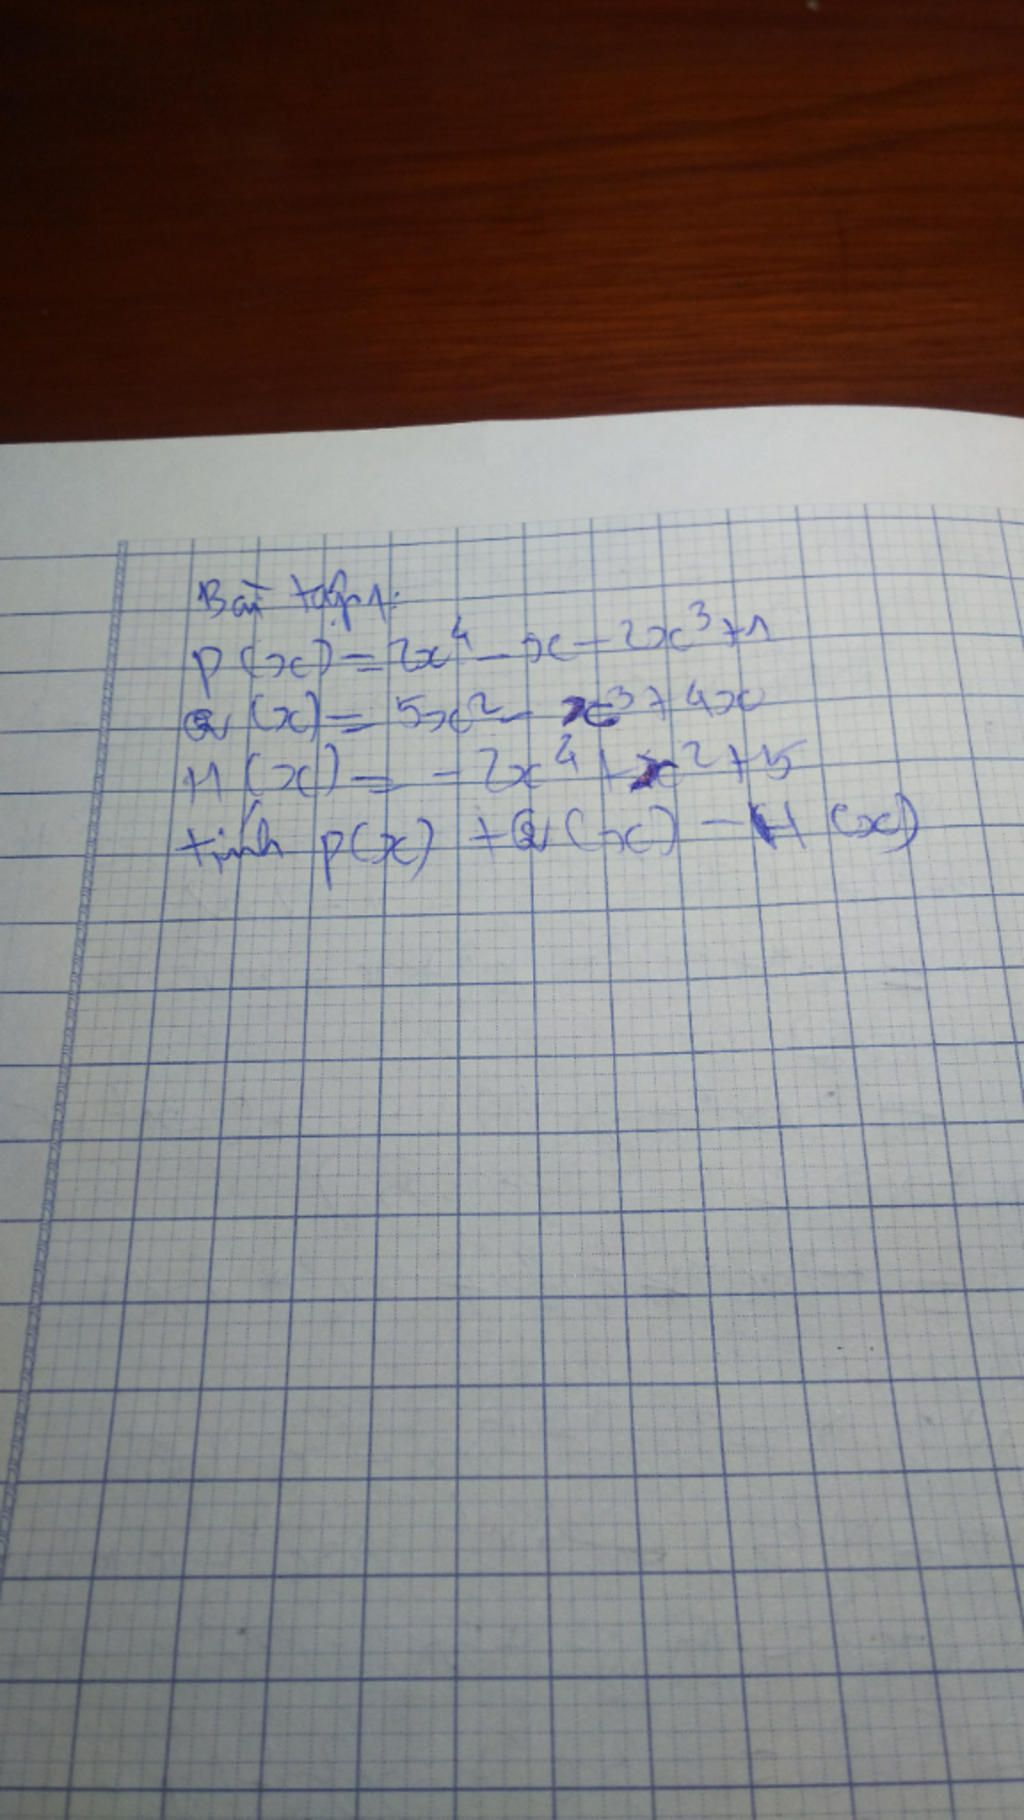 Bài tập 1:
P(x) = 2x⁴ - x - 2x³ + 1
Q(x) = 5x² - x³ + 4x
H(x) = -2x⁴ + x² + 5
tính P(x) + Q(x) - H(x)